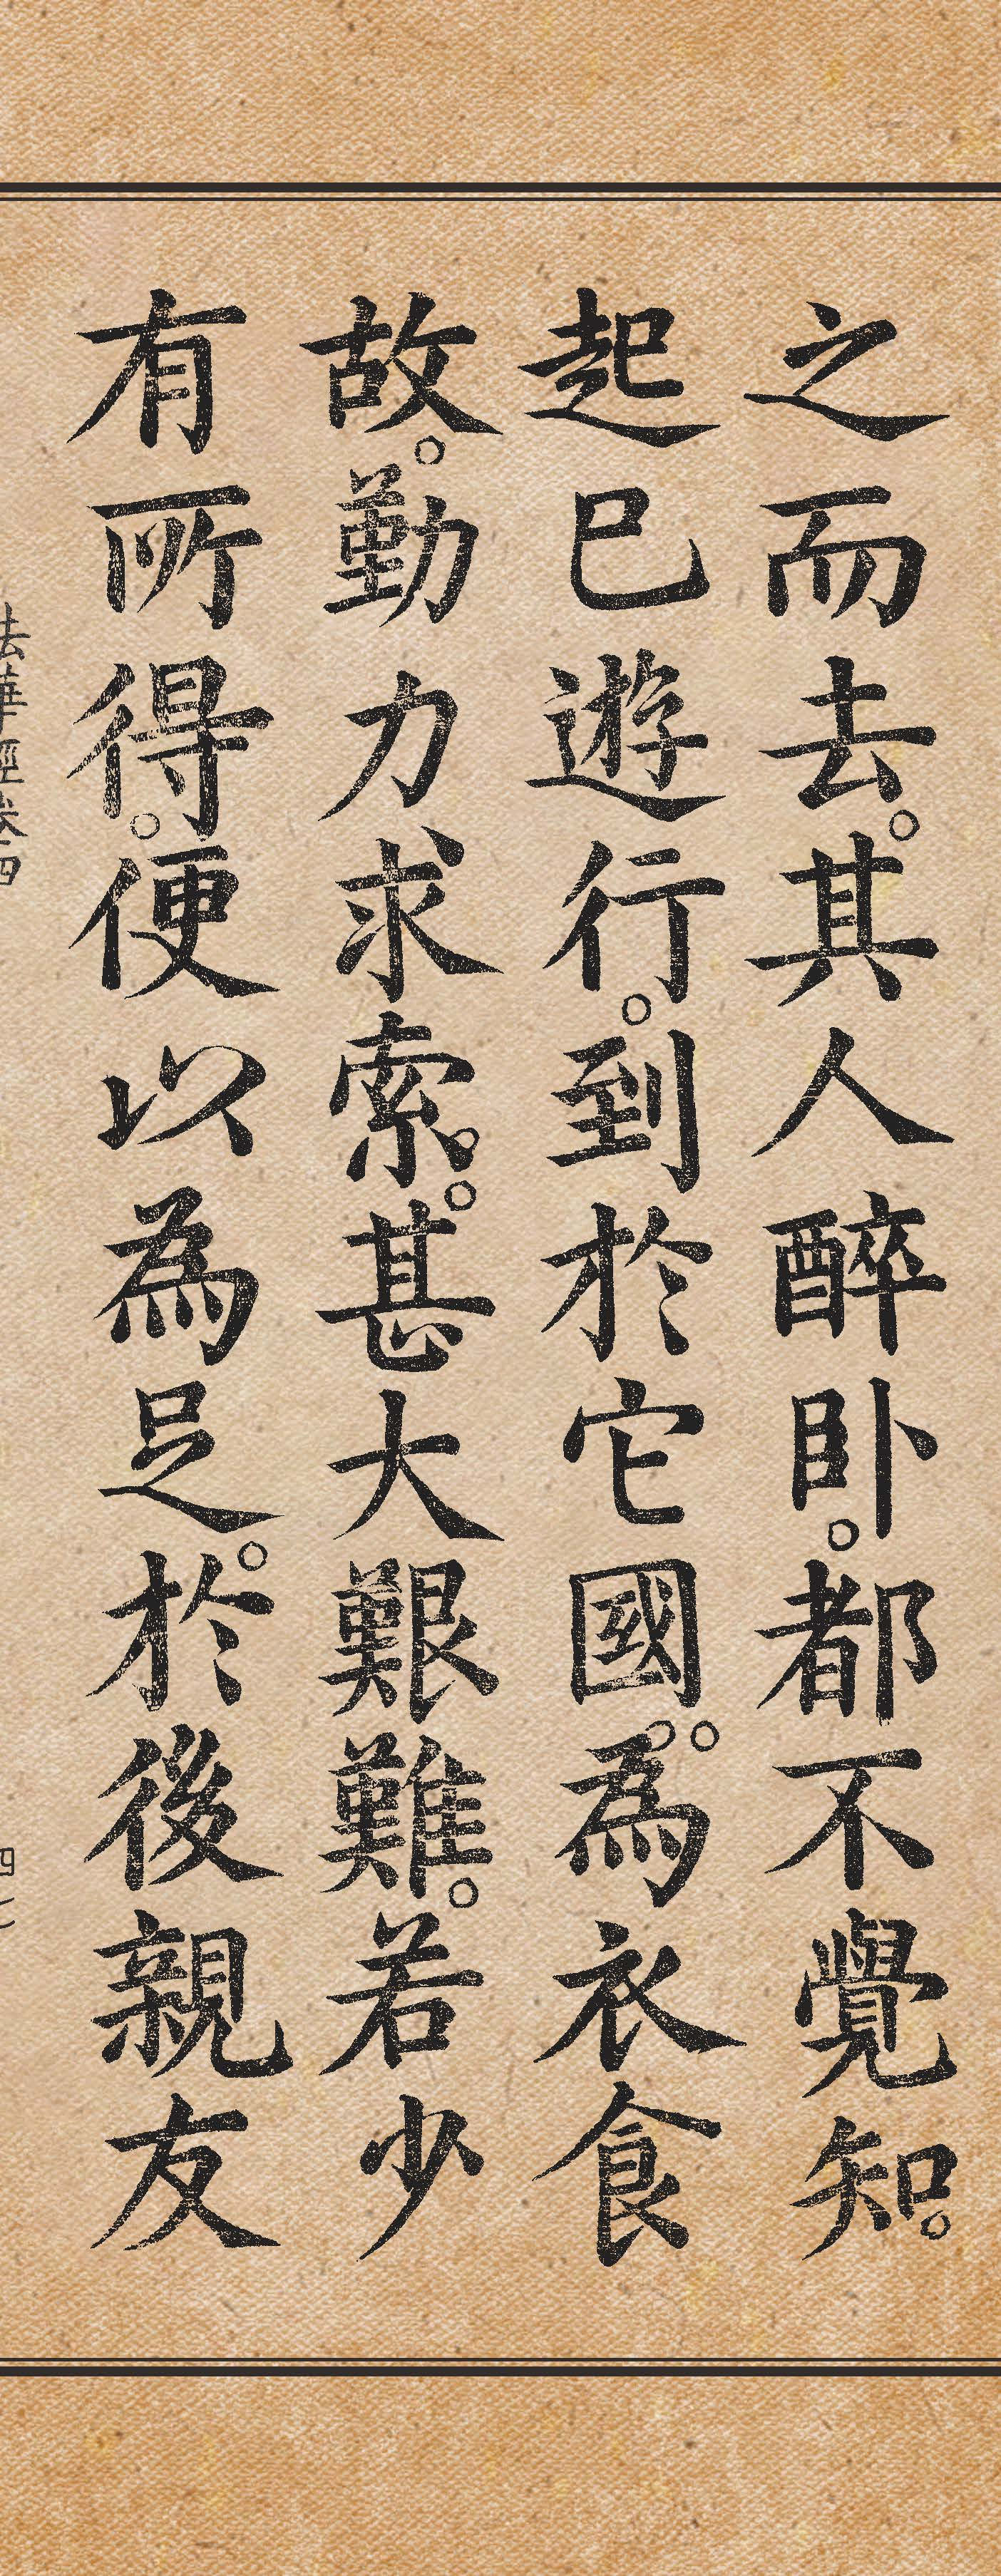 之而去。其人醉卧。都不覺知。
起已遊行。到於它國。為衣食
故。勤力求索。甚大艱難。若少
有所得。便以為足。於後親友
法華經卷四
四七